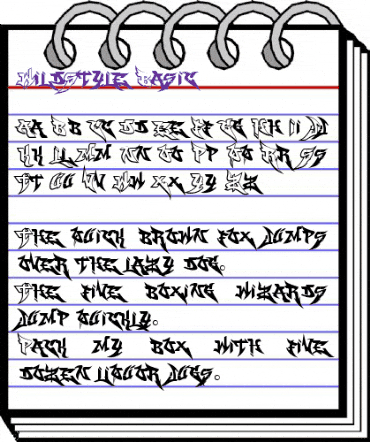 Wildstyle Basic
Aa Bb Cc Dd Ee Ff Gg Hh Ii Jj
Kk Ll Mm Nn Oo Pp Qq Rr Ss
Tt Uu Vv Ww Xx Yy Zz
The quick brown fox jumps
over the lazy dog.
The five boxing wizards
jump quickly.
Pack my box with five
dozen liquor jugs.